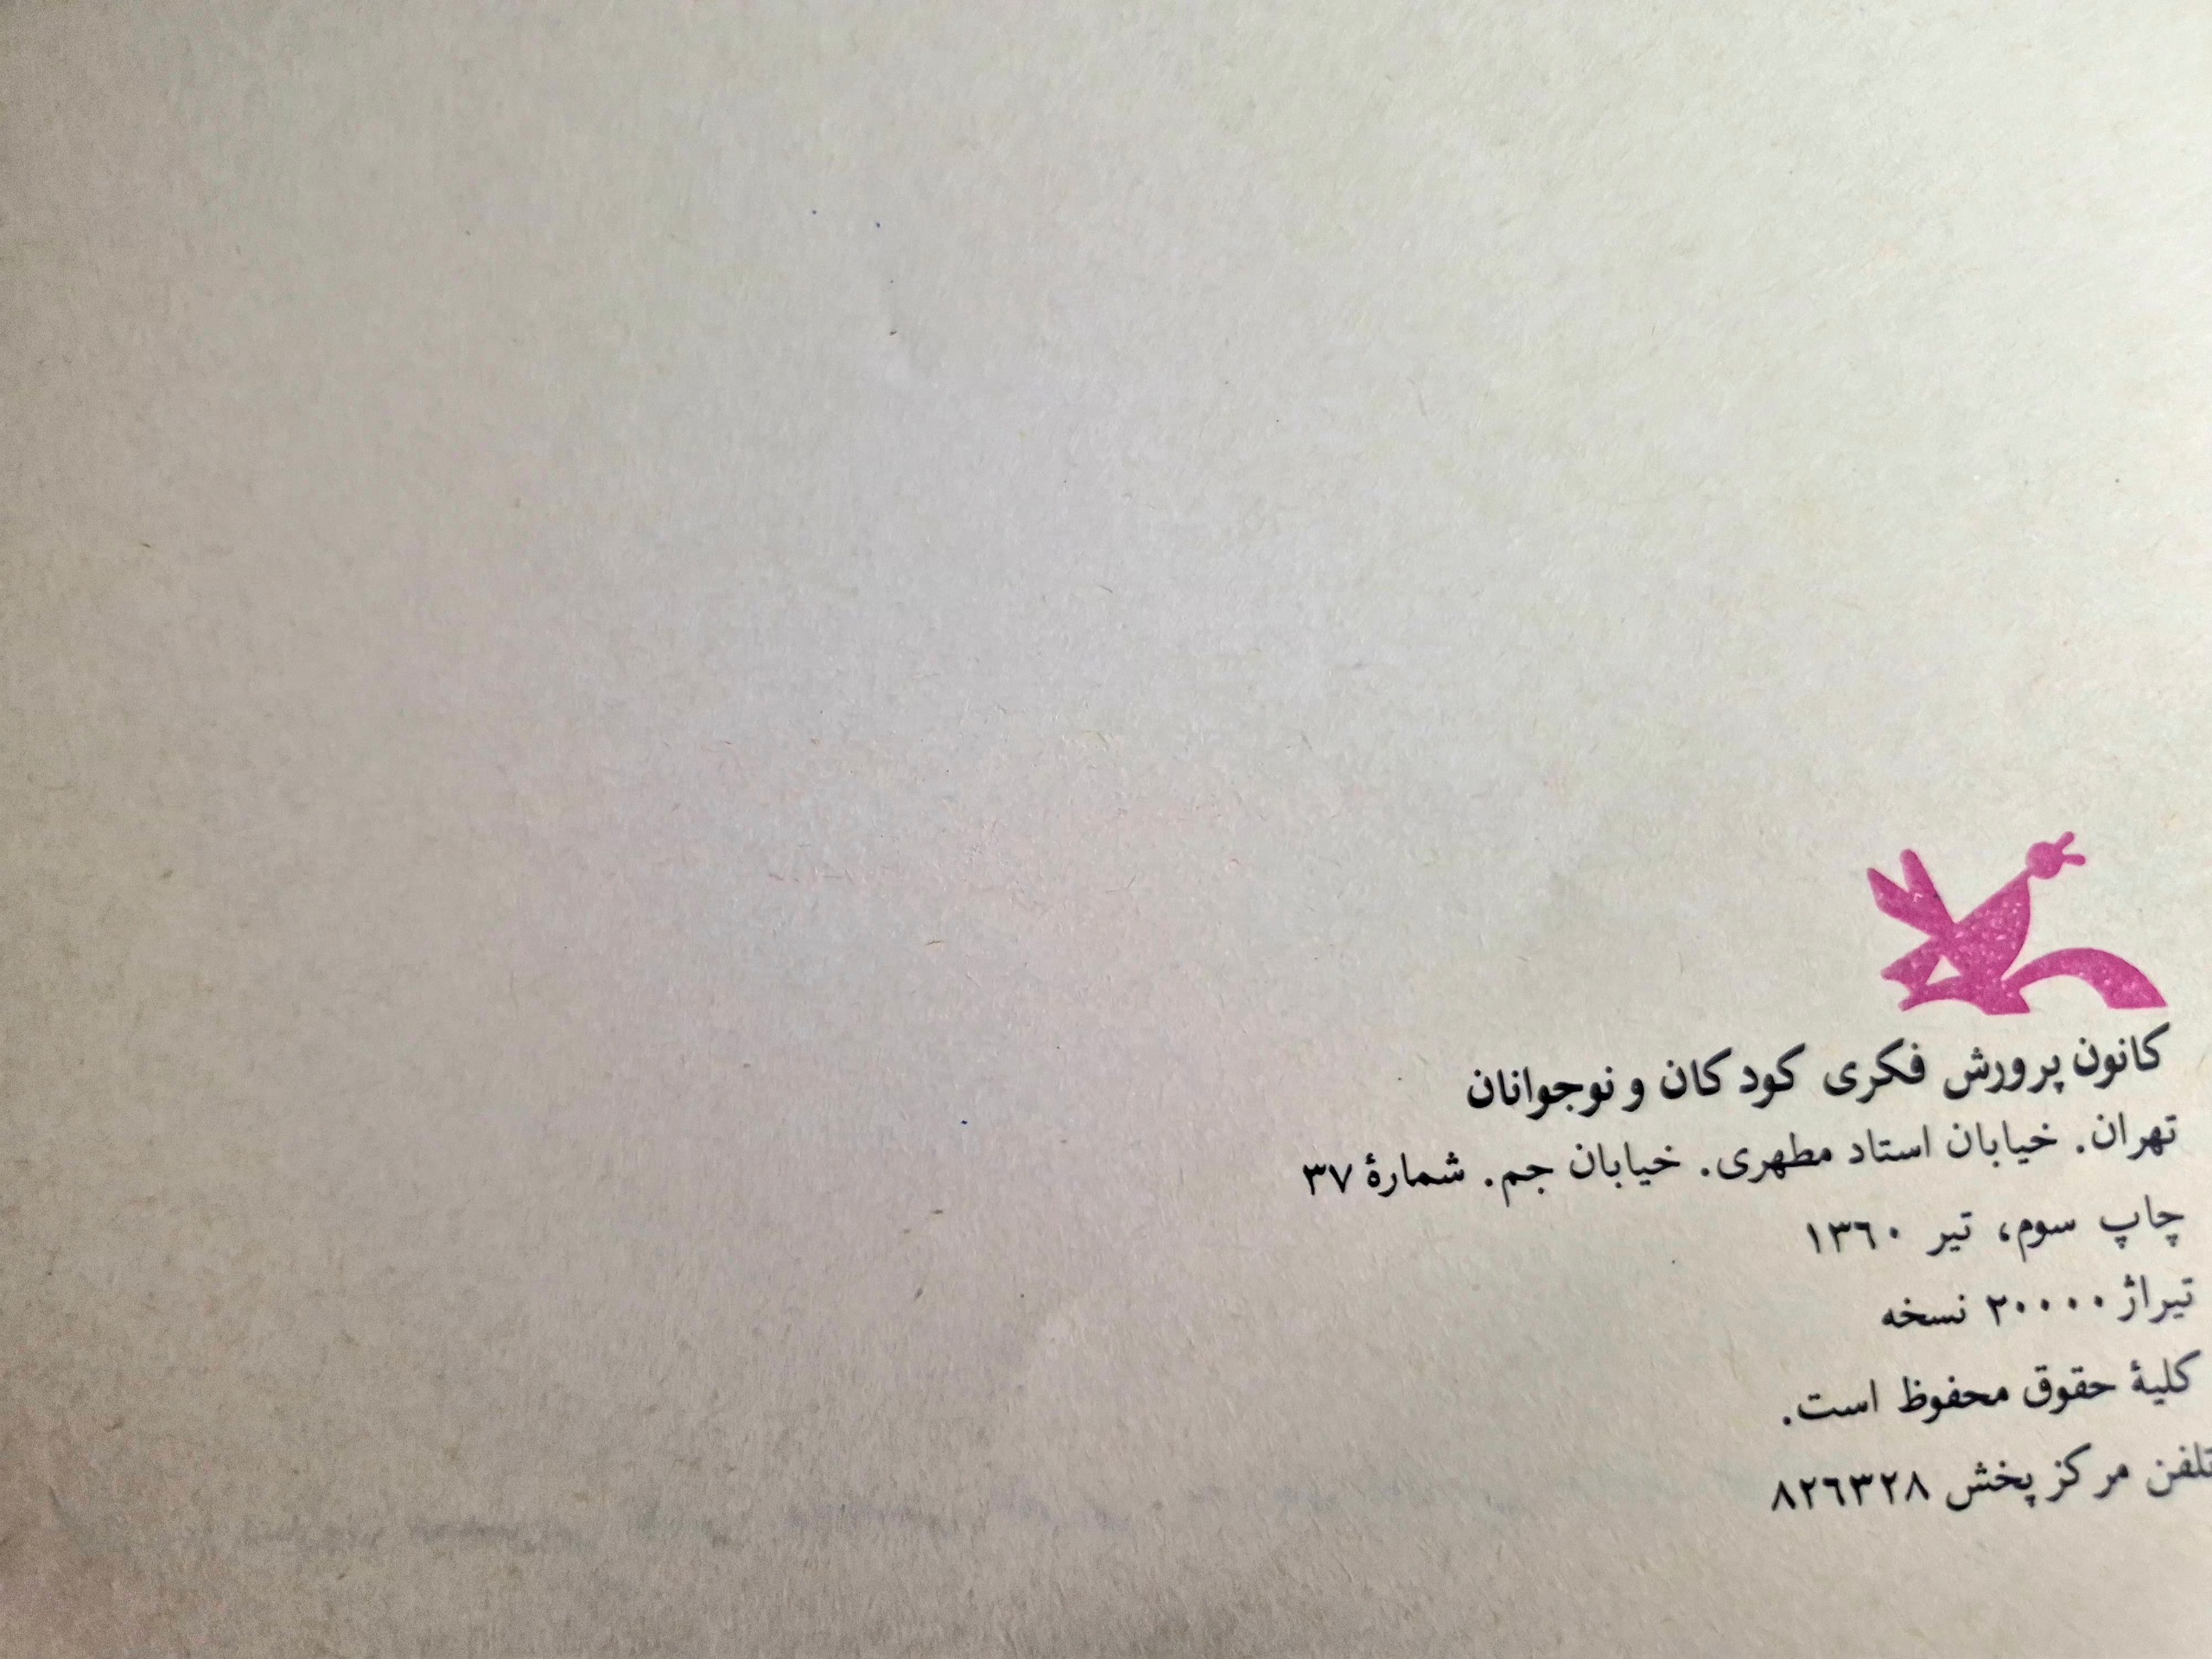 کانون پرورش فکری کودکان و نوجوانان
تهران. خیابان استاد مطهری. خیابان جم. شمارهٔ ۳۷
چاپ سوم، تیر ۱۳۶۰
تیراژ ۲۰۰۰۰ نسخه
کلیهٔ حقوق محفوظ است.
تلفن مرکز پخش ۸۲۶۳۲۸